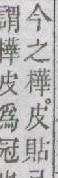 今之樺皮貼
謂樺皮爲冠